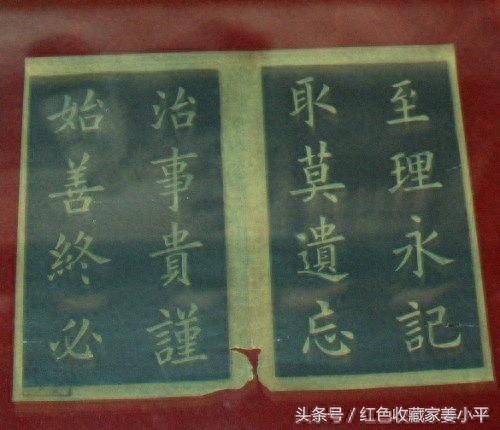 至理永記
耴莫遺忘
治事貴謹
始善終必
头条号／红色收藏家姜小平